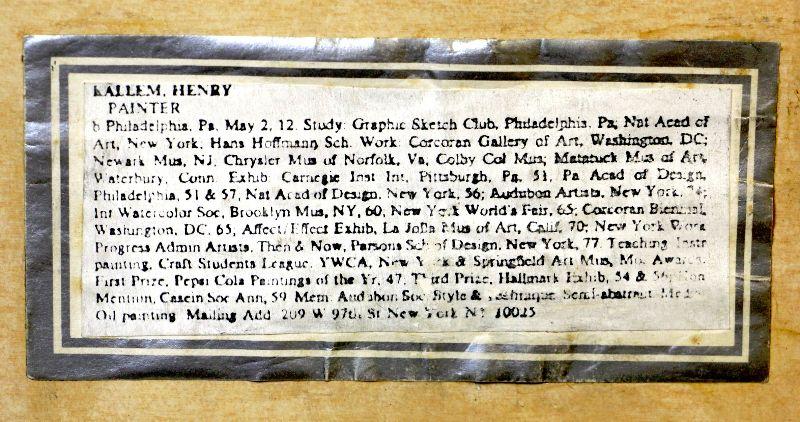 KALLEM, HENRY
PAINTER
b Philadelphia, Pa, May 2, 12. Study: Graphic Sketch Club, Philadelphia, Pa; Nat Acad of
Art, New York; Hans Hoffmann Sch. Work: Corcoran Gallery of Art, Washington, DC;
Newark Mus, NJ; Chrysler Mus of Norfolk, Va; Colby Col Mus; Matatuck Mus of Art,
Waterbury, Conn. Exhib: Carnegie Inst Int, Pittsburgh, Pa, 51; Pa Acad of Design,
Philadelphia, 51 & 57; Nat Acad of Design, New York, 56; Audubon Artists, New York,
Int Watercolor Soc, Brooklyn Mus, NY, 60; New York World's Fair, 65; Corcoran Biennial,
Washington, DC, 65; Affect/Effect Exhib, La Jolla Mus of Art, Calif, 70; New York Work
Progress Admin Artists, Then & Now, Parsons Sch of Design, New York, 77. Teaching: Instr
painting, Craft Students League, YWCA, New York & Springfield Art Mus, Mo. Awards:
First Prize, Pepsi Cola Paintings of the Yr, 47; Third Prize, Hallmark Exhib, 54 & 56; Hon
Mention, Casein Soc Ann, 59. Mem: Audubon Soc. Style & Technique: Semi-abstract. Media:
Oil painting. Mailing Add: 209 W 97th St New York NY 10025